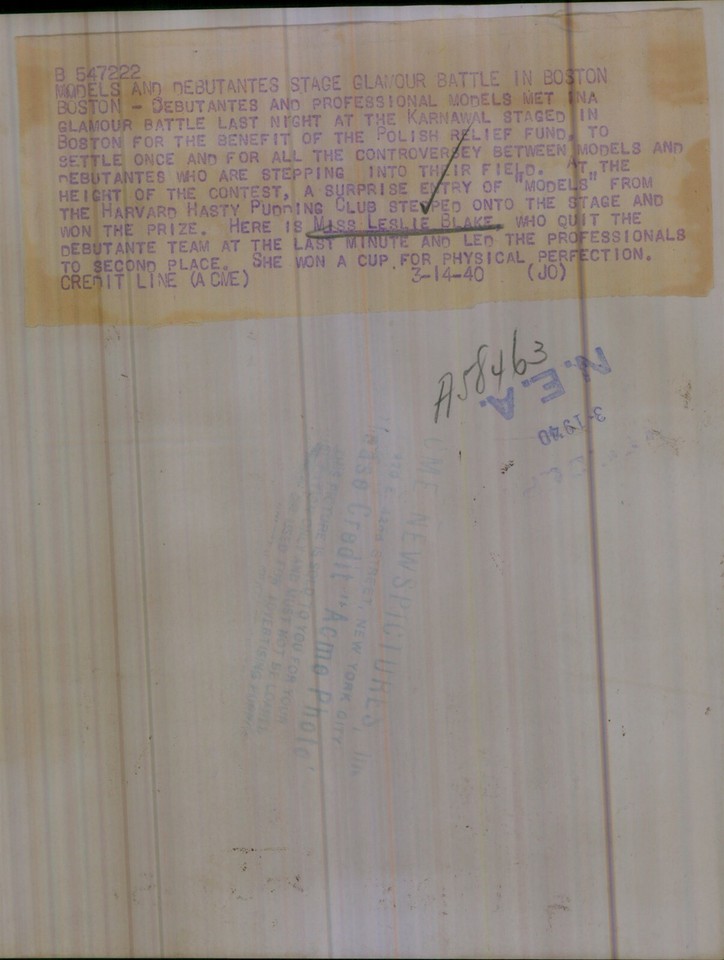 B 547222
MODELS AND DEBUTANTES STAGE GLAMOUR BATTLE IN BOSTON
BOSTON - DEBUTANTES AND PROFESSIONAL MODELS MET INA
GLAMOUR BATTLE LAST NIGHT AT THE KARNAWAL STAGED IN
BOSTON FOR THE BENEFIT OF THE POLISH RELIEF FUND, TO
SETTLE ONCE AND FOR ALL THE CONTROVERSEY BETWEEN MODELS AND
DEBUTANTES WHO ARE STEPPING INTO THEIR FIELD. AT THE
HEIGHT OF THE CONTEST, A SURPRISE ENTRY OF "MODELS" FROM
THE HARVARD HASTY PUDDING CLUB STEPPED ONTO THE STAGE AND
WON THE PRIZE. HERE IS MISS LESLIE BLAKE, WHO QUIT THE
DEBUTANTE TEAM AT THE LAST MINUTE AND LED THE PROFESSIONALS
TO SECOND PLACE. SHE WON A CUP FOR PHYSICAL PERFECTION.
CREDIT LINE (ACME) 3-14-40 (JO)
A58463
N.E.A.
3-1940
NEWSPICTURES, In
STREET, NEW YORK CITY
Credit "Acme Photo"